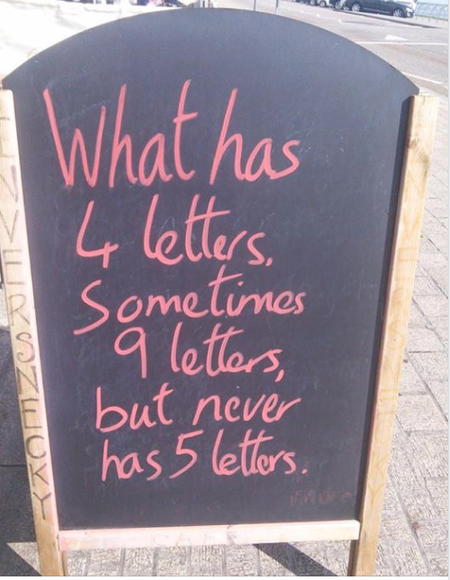 What has
4 letters,
Sometimes
9 letters,
but never
has 5 letters.
INVERSNECKY